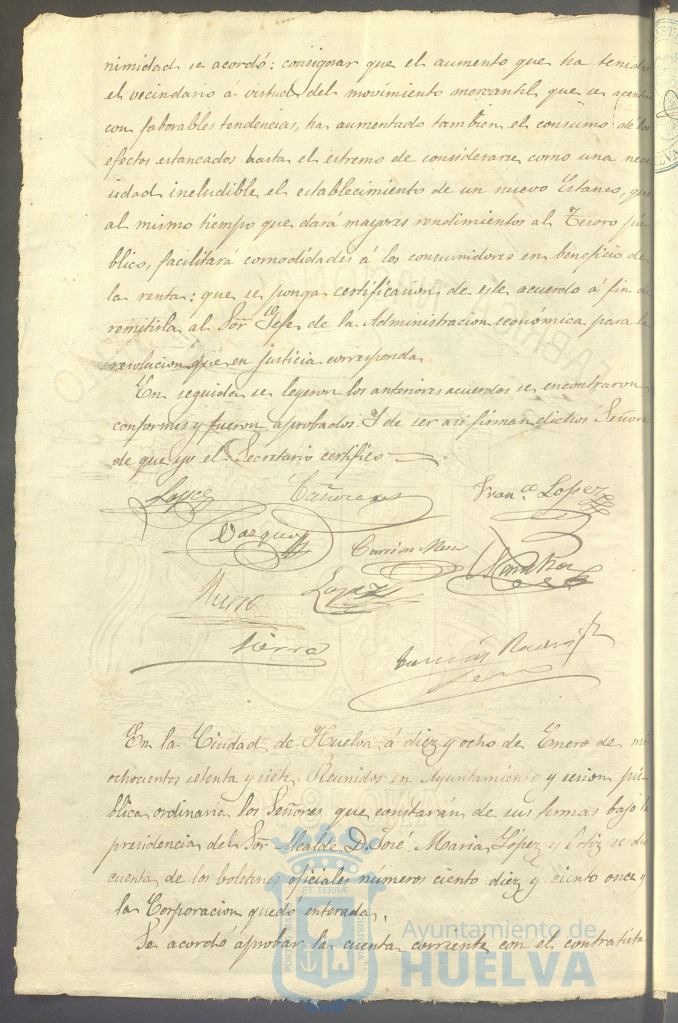 nimidad se acordó: consignar que el aumento que ha tenido
el vecindario á virtud del movimiento mercantil que se acentu
con faborables tendencias, ha aumentado tambien el consumo de los
efectos estancados hasta el estremo de considerarse como una nece
sidad ineludible el establecimiento de un nuevo Estanco, que
al mismo tiempo que dará mayores rendimientos al Tesoro pú
blico, facilitará comodidades á los consumidores en beneficio de
la renta: que se ponga certificacion de este acuerdo á fin de
remitirla al Sor Jefe de la Administracion económica para la
resolucion que en justicia corresponda.
En seguida se leyeron los anteriores acuerdos se encontraron
conformes y fueron aprobados. Y de ser asi firman dichos Señores
de que yo el Secretario certifico
Lopez
Fran.co Lopez
Vazquez
Carrion
Lopez
Sierra
En la Ciudad de Huelva á diez y ocho de Enero de mil
ochocientos setenta y siete. Reunidos en Ayuntamiento y sesion pú
blica ordinaria los Señores que constarán de sus firmas bajo la
presidencia del Sor Alcalde D. José Maria López y Ortiz se dio
cuenta de los boletines oficiales números ciento diez y ciento once y
la Corporacion quedó enterada.
Se acordó aprobar la cuenta corriente con el contratista
Ayuntamiento de
HUELVA